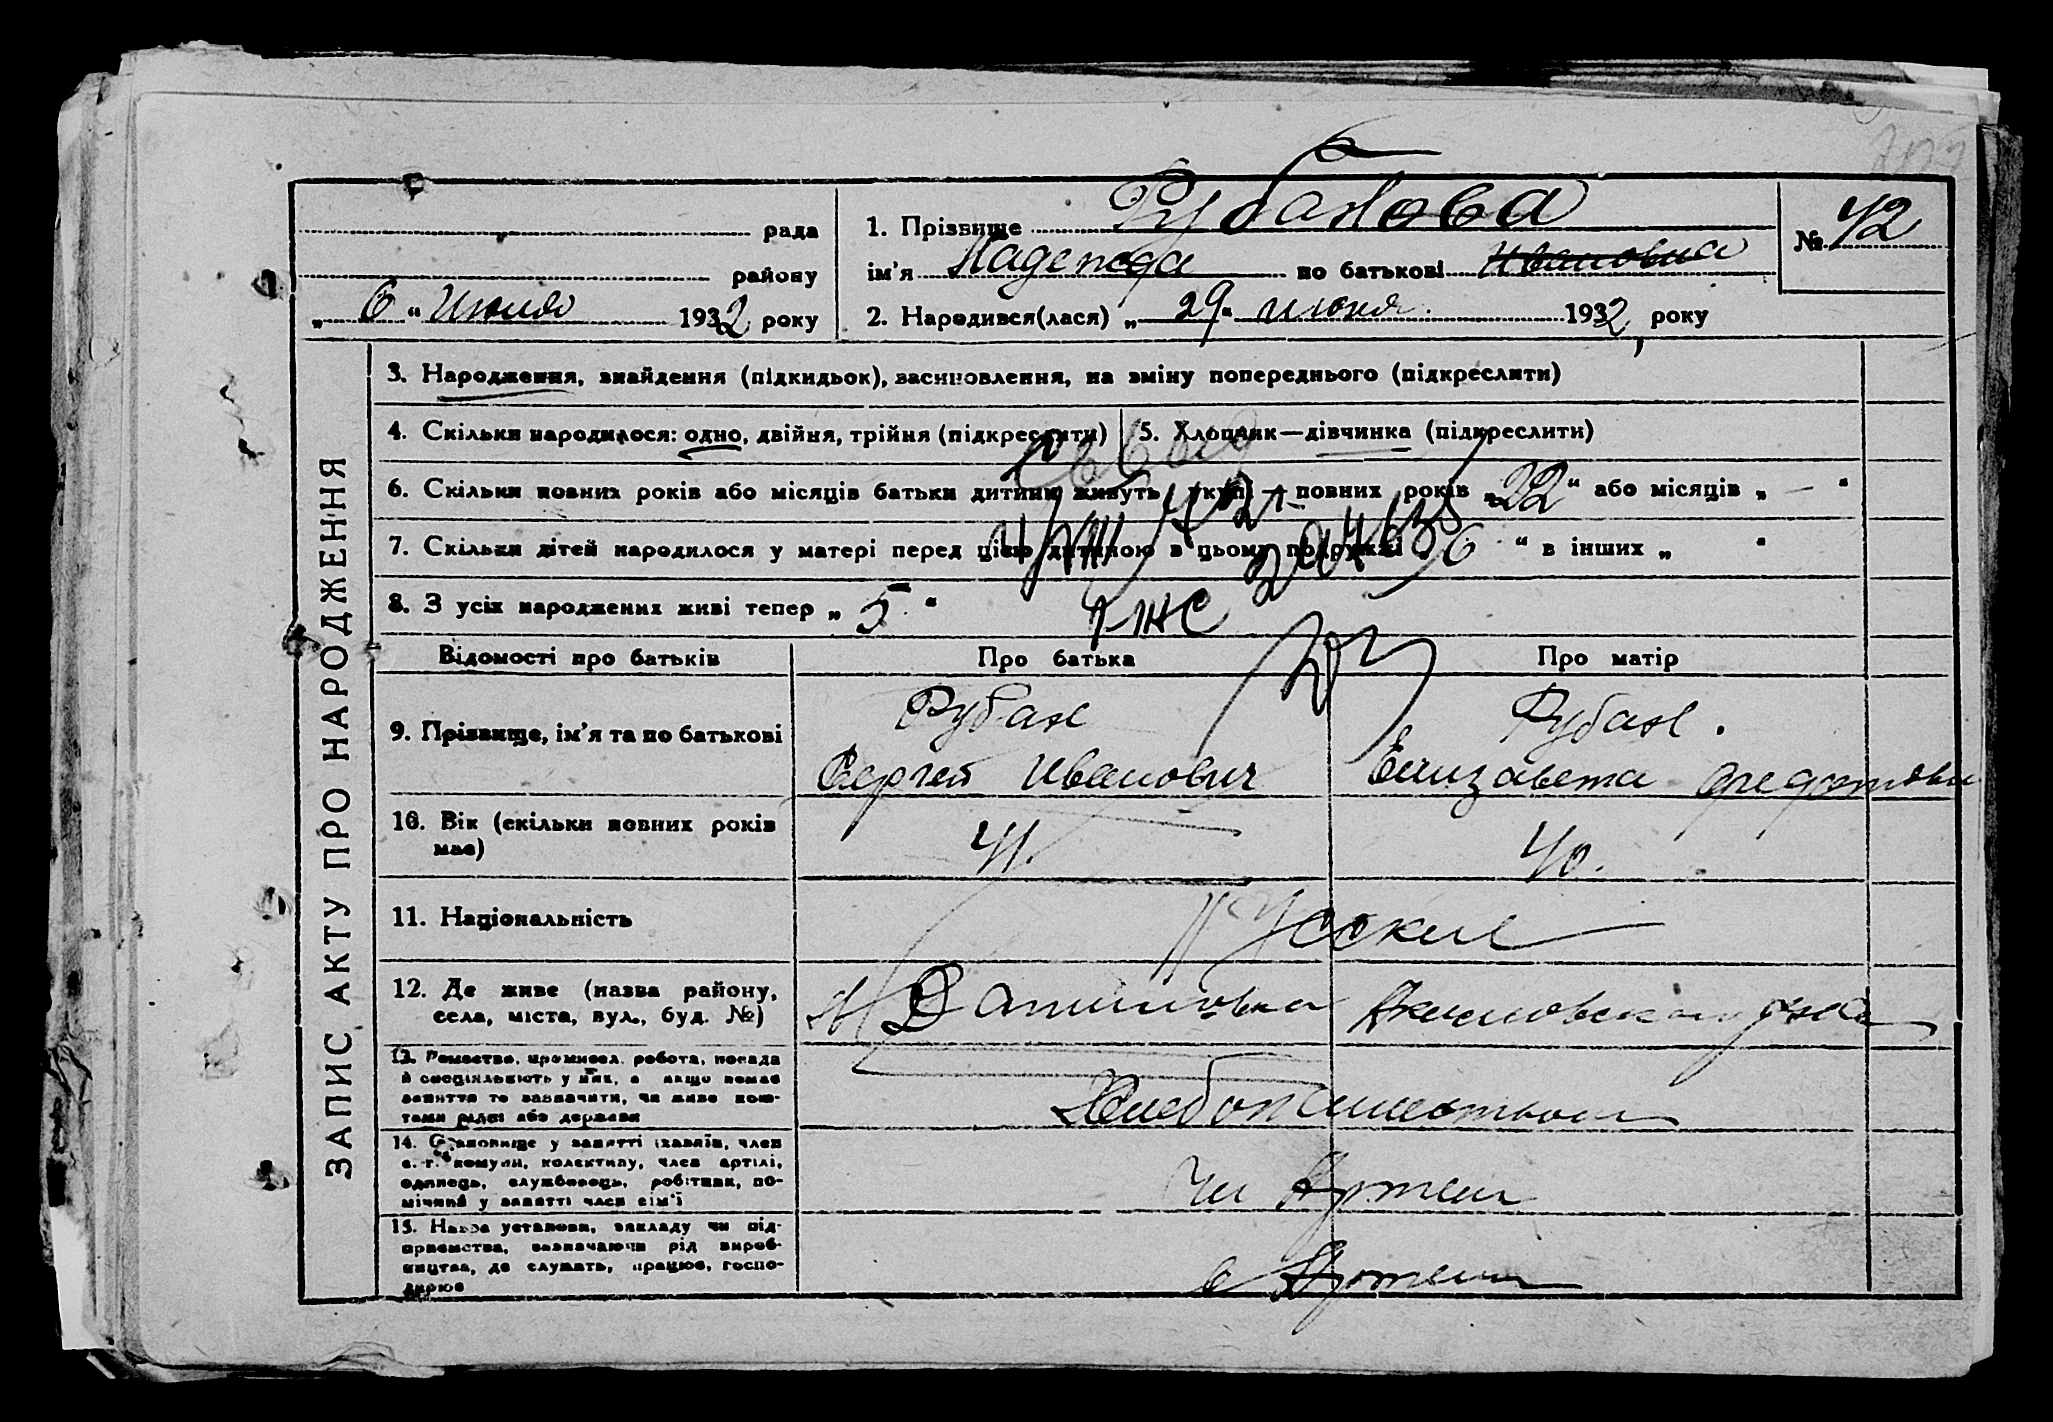 рада
1. Прізвище Рубанова
№ 42
району
ім'я Надежда по батькові Ивановна
„ 6 “ Июля 1932 року
2. Народився(лася) „ 29 “ июня 1932 року
ЗАПИС АКТУ ПРО НАРОДЖЕННЯ
3. Народження, знайдення (підкидьок), всиновлення, на зміну попереднього (підкреслити)
4. Скільки народилося: одно, двійня, трійня (підкреслити)
5. Хлопчик—дівчинка (підкреслити)
6. Скільки повних років або місяців батьки дитини живуть укупі — повних років „ 22 “ або місяців „ — “
7. Скільки дітей народилося у матері перед цією дитиною в цьому подружжі „ 6 “ в інших „ “
8. З усіх народжених живі тепер „ 5 “
Відомості про батьків
Про батька
Про матір
9. Прізвище, ім'я та по батькові
Рубан
Сергей Иванович
Рубан.
Елизавета Федотовна
10. Вік (скільки повних років
має)
41.
40.
11. Національність
Русские
12. Де живе (назва району,
села, міста, вул., буд. №)
Акимовского р-на
13. Ремество, промисел, робота, посада
й спеціяльність у них, а якщо немає
заняття то зазначити, чи живе кош-
тами рідні або держави
Хлебопашеством
14. Становище у занятті (хазяїн, член
с.-г. комуни, колективу, член артілі,
одинець, службовець, робітник, по-
мічний у занятті член сім'ї
чл Артели
15. Назва установи, закладу чи під-
приємства, зазначаючи рід вироб-
ництва, де служать, працює, госпо-
дарює
в Артели